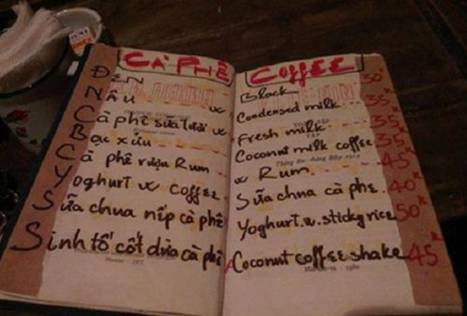 CÀ PHÊ
ĐEN
Nâu
Cà phê sữa tươi
Bạc xửu
Cà phê rượu Rum
Yoghurt w coffee
Sữa chua nếp cà phê
Sinh tố cốt dừa cà phê
COFFEE
Black 30k
Condensed milk 35k
Fresh milk 35k
Coconut milk coffee 35k
w Rum 45k
Sữa chua cà phê 40k
Yoghurt.w.stickyrice 50k
Coconut coffee shake 45k